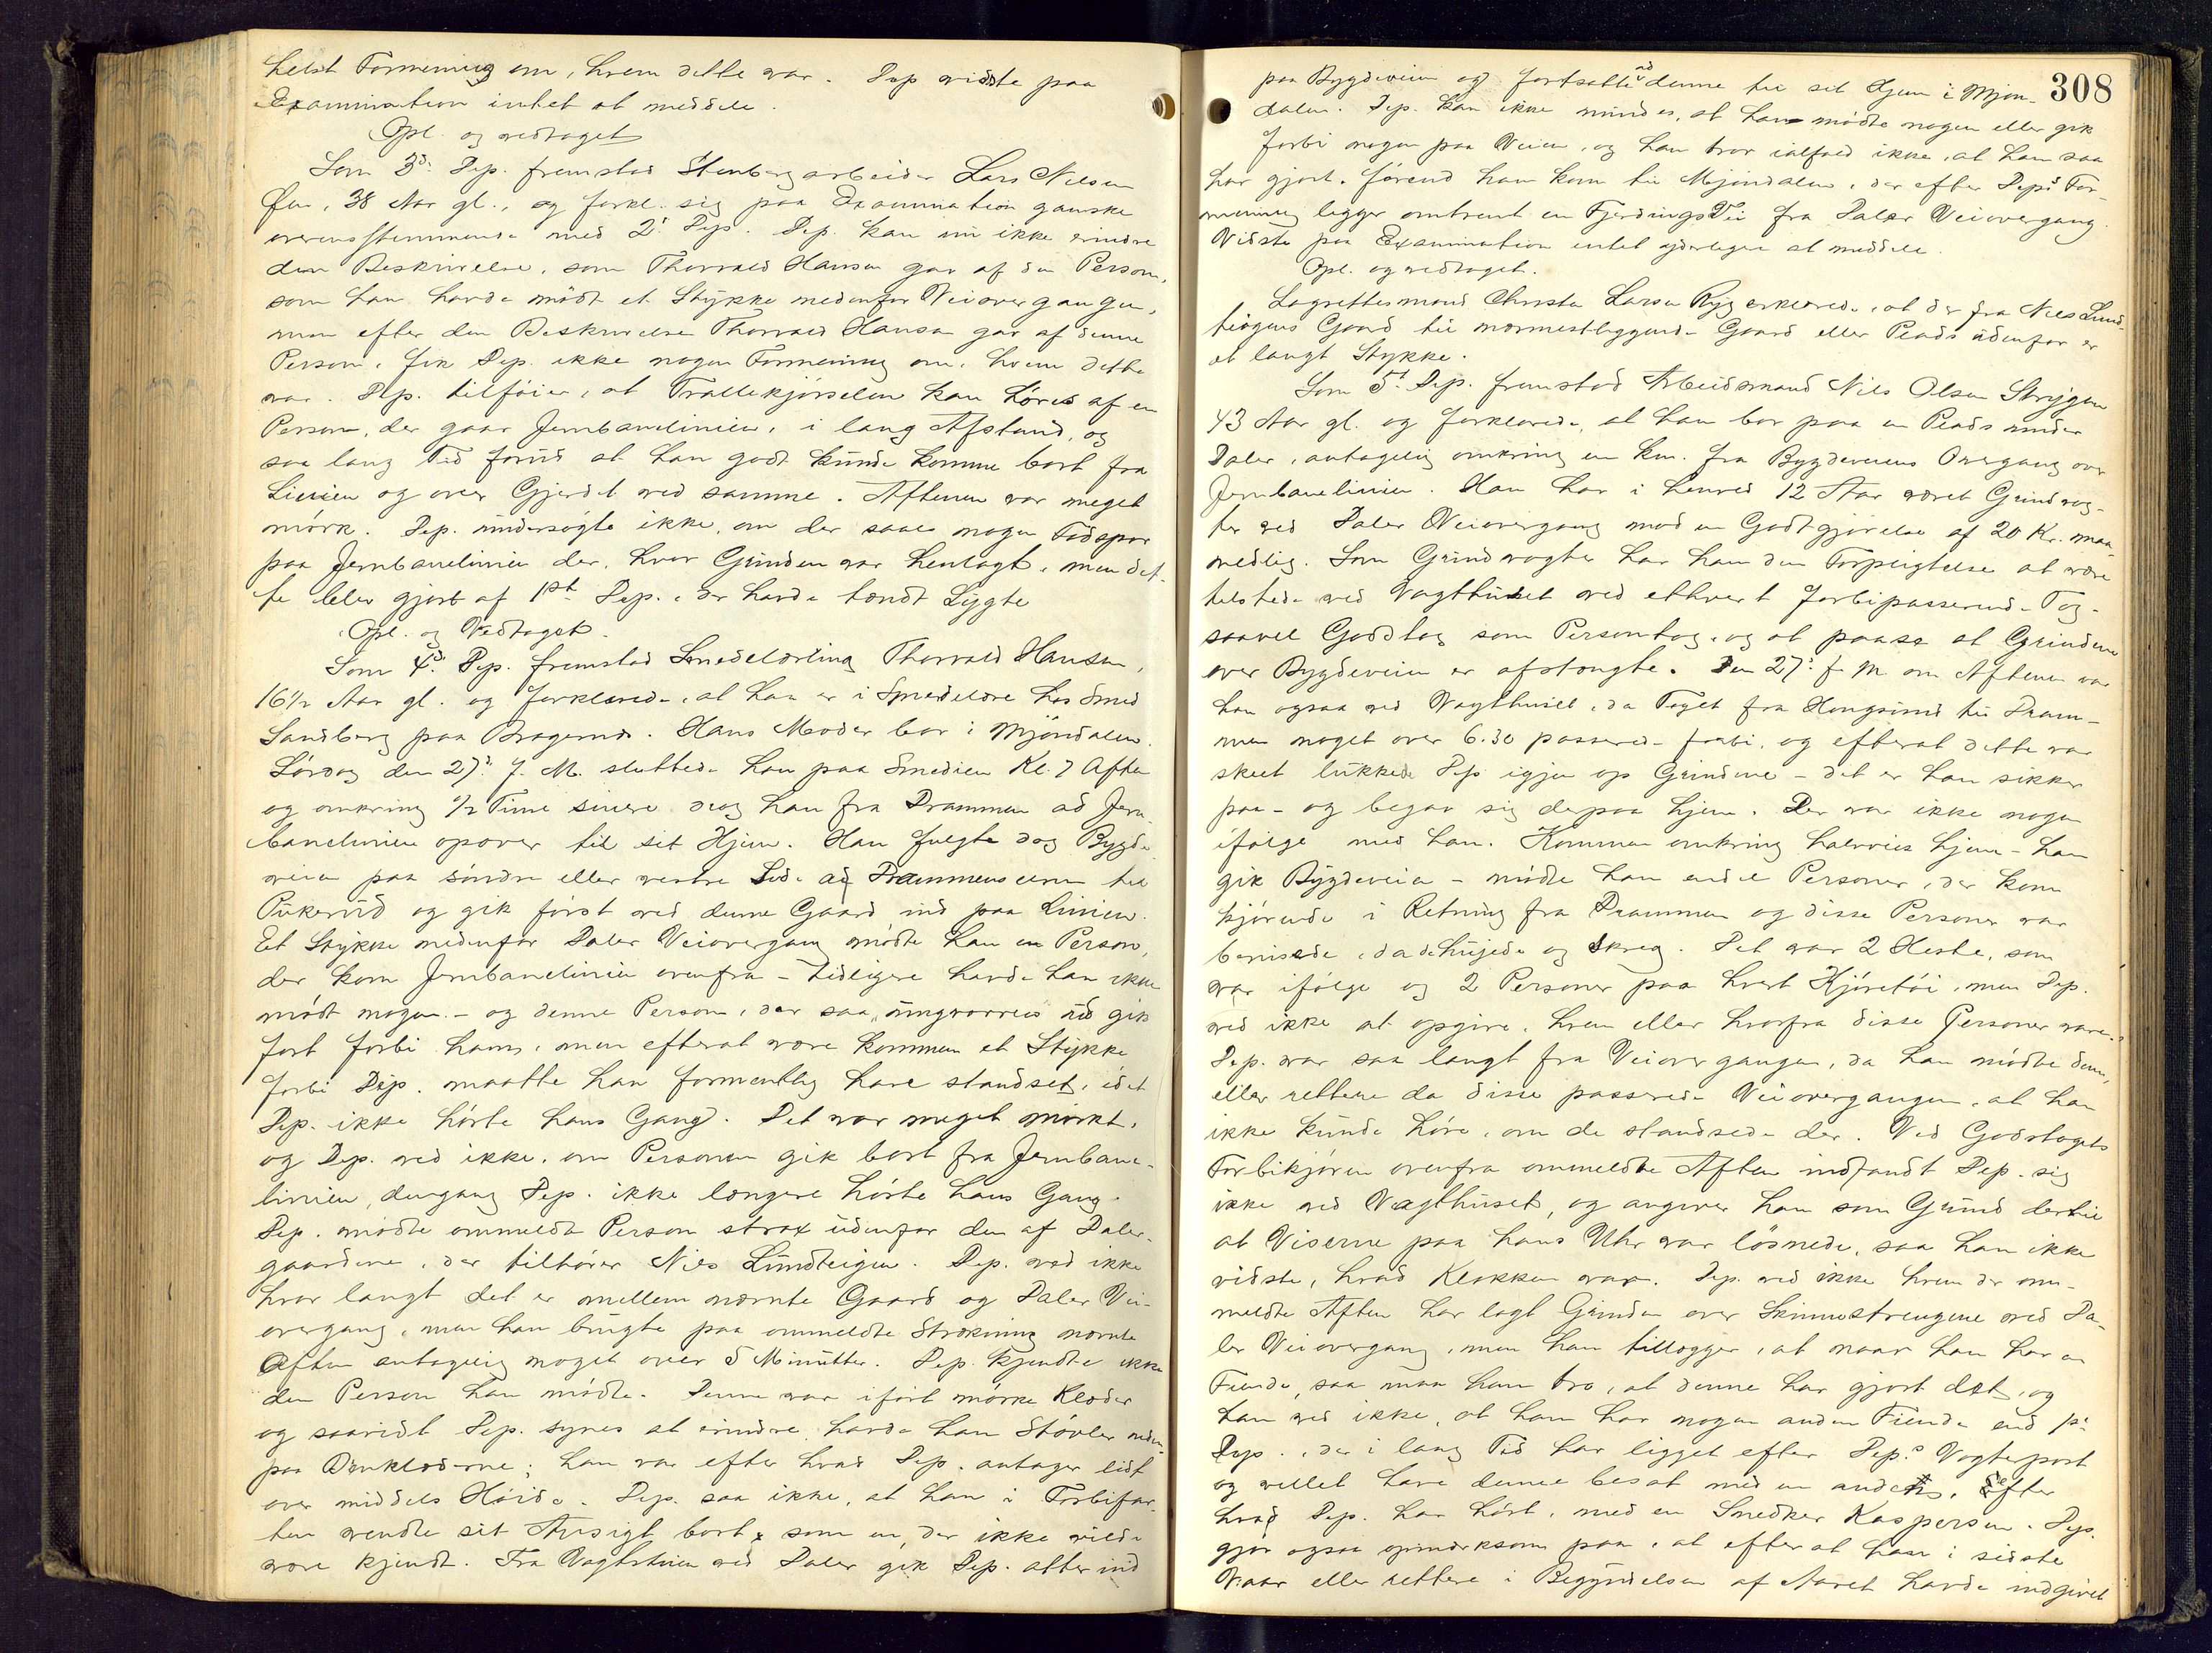 helst Formening om, hvem dette var. Dep vidste paa
Examination intet at meddele.
Opl. og vedtaget
Som 3d: Dep. fremstod Stenbergsarbeider Lars Nilsen
Øen, 38 Aar gl., og forkl. sig paa Examination ganske
overensstemmende med 2d: Dep. Dep. kan nu ikke erindre
den Beskrivelse, som Thorvald Hansen gav af den Person,
som han havde mødt et Stykke nedenfor Veiovergangen,
men efter den Beskrivelse Thorvald Hansen gav af denne
Person, fik Dep. ikke nogen Formening om, hvem dette
var. Dep. tilføier, at Trallekjørselen kan høres af en
Person, der gaar Jernbanelinien, i lang Afstand, og
saa lang Tid forud at han godt kunde komme bort fra
Linien og over Gjerdet ved samme. Aftenen var meget
mørk. Dep. undersøgte ikke, om der saaes nogen Fodspor
paa Jernbanelinien der, hvor Grinden var henlagt, men det-
te blev gjort af 1st Dep., der havde tændt Lygte
Opl. og Vedtaget.
Som 4d: Dep. fremstod Smedelærling Thorvald Hansen,
16½ Aar gl. og forklarede, at han er i Smedelære hos Smed
Sandberg paa Bragernes. Hans Moder bor i Mjøndalen.
Lørdag den 27d: f. M. sluttede han paa Smedien Kl. 7 Aften
og omkring ½ Time senere drog han fra Drammen ad Jern-
banelinien opover til sit Hjem. Han fulgte dog Bygde-
veien paa søndre eller vestre Side af Drammenselven til
Pukerud og gik først ved denne Gaard ind paa Linien.
Et Stykke nedenfor Daler Veiovergang mødte han en Person,
der kom Jernbanelinien ovenfra – tidligere havde han ikke
mødt nogen – og denne Person, der saa „ungvorren“ ud gik
fort forbi ham, men efterat være kommen et Stykke
forbi Dep. maatte han formentlig have standset, idet
Dep. ikke hørte hans Gang. Det var meget mørkt,
og Dep. ved ikke, om Personen gik bort fra Jernbane-
linien, dengang Dep. ikke længere hørte hans Gang.
Dep. mødte ommeldte Person strax udenfor den af Daler-
gaardene, der tilhører Nils Lundteigen. Dep. ved ikke
hvor langt det er mellem nævnte Gaard og Daler Vei-
overgang, men han brugte paa ommeldte Strækning nævnte
Aften antagelig noget over 5 Minutter. Dep. kjendte ikke
den Person han mødte. Denne var iført mørke Klæder
og saavidt Dep. synes at erindre havde han Støvler uden-
paa Benklæderne; han var efter hvad Dep. antager lidt
over middels Høide. Dep. saa ikke, at han i Forbifar-
ten vendte sit Ansigt bort, som en, der ikke vilde
være kjendt. Fra Vagtstuen ved Daler gik Dep. atter ind
308
paa Bygdeveien og fortsatte ad denne til sit Hjem i Mjøn-
dalen. Dep. kan ikke mindes, at han mødte nogen eller gik
forbi nogen paa Veien, og han tror ialfald ikke, at han saa
har gjort, førend han kom til Mjøndalen, der efter Deps For-
mening ligger omtrent en Fjerdings Vei fra Daler Veiovergang.
Vidste paa Examination intet yderligere at meddele.
Opl. og vedtaget.
Lagrettesmand Christen Larsen Ryg erklærede, at der fra Nils Lund-
teigens Gaard til nærmestliggende Gaard eller Plads udenfor er
et langt Stykke.
Som 5t: Dep. fremstod Arbeidsmand Nils Olsen Strygen
43 Aar gl. og forklarede, at han bor paa en Plads under
Daler, antagelig omkring en km. fra Bygdeveiens Overgang over
Jernbanelinien. Han har i henved 12 Aar været Grindvog-
ter ved Daler Veiovergang mod en Godtgjørelse af 20 Kr. maa-
nedlig. Som Grindvogter har han den Forpligtelse at være
tilstede ved Vagthuset ved ethvert forbipasserende Tog,
saavel Godstog som Persontog, og at paase at Grindene
over Bygdeveien er afstængte. Den 27d: f. M. om Aftenen var
han ogsaa ved Vagthuset, da Toget fra Hougsund til Dram-
men noget over 6.30 passerede forbi, og efterat dette var
skeet lukkede Dep igjen op Grindene – det er han sikker
paa – og begav sig derpaa hjem. Der var ikke nogen
ifølge med ham. Kommen omkring halvveis hjem – han
gik Bygdeveien – mødte han endel Personer, der kom
kjørende i Retning fra Drammen og disse Personer var
berusede, da de hujede og skreg. Det var 2 Heste, som
var ifølge og 2 Personer paa hvert Kjøretøi, men Dep.
ved ikke at opgive, hvem eller hvorfra disse Personer vare.
Dep. var saa langt fra Veiovergangen, da han mødte dem,
eller rettere da disse passerede Veiovergangen, at han
ikke kunde høre, om de standsede der. Ved Godstogets
Forbikjøren ovenfra ommeldte Aften indfandt Dep. sig
ikke ved Vagthuset, og angiver han som Grund dertil
at Viserne paa hans Uhr var løsnede, saa han ikke
vidste, hvad Klokken var. Dep. ved ikke hvem der om-
meldte Aften har lagt Grinden over Skinnestrengene ved Da-
ler Veiovergang, men han tillægger, at naar han har en
Fiende, saa maa han tro, at denne har gjort det, og
han ved ikke, at han har nogen anden Fiende end 1st
Dep., der i lang Tid har ligget efter Deps Vogterpost
og villet have denne besat med en anden, efter
hvad Dep. har hørt, med en Snedker Kaspersen. Dep.
gjør ogsaa opmærksom paa, at efter at han i sidste
Vaar eller rettere i Begyndelsen af Aaret havde indgivet